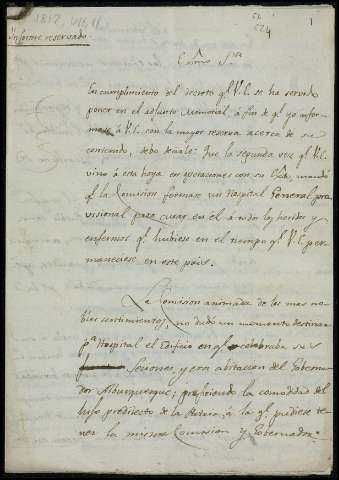 1812, VII, 11
52
524
1
Informe reservado
Exmo. Sor.
En cumplimiento del decreto qe. V.E. se ha servido
poner en el adjunto memorial, á fin de qe. yo infor-
mase á V.E. con la mayor reserva acerca de su
contenido, debo decirle: Que la segunda vez qe. V.E.
vino á esta hoya en operaciones con su mandó
qe. la Comision formase un Hospital General pro-
visional para curar en él á todos los heridos y
enfermos qe. hubiese en el tiempo qe. V.E. per-
maneciese en este pais.
La Comision animada de los mas no-
bles sentimientos, no dudó un momento destinar
pa. Hospital el Edificio en qe. celebraba sus
Sesiones, y era abitacion del Gober-
nador Alburquerque; prefiriendo la comodidad del
hijo predilecto de la Patria, á la qe. pudiese te-
ner la misma Comision y Gobernador.